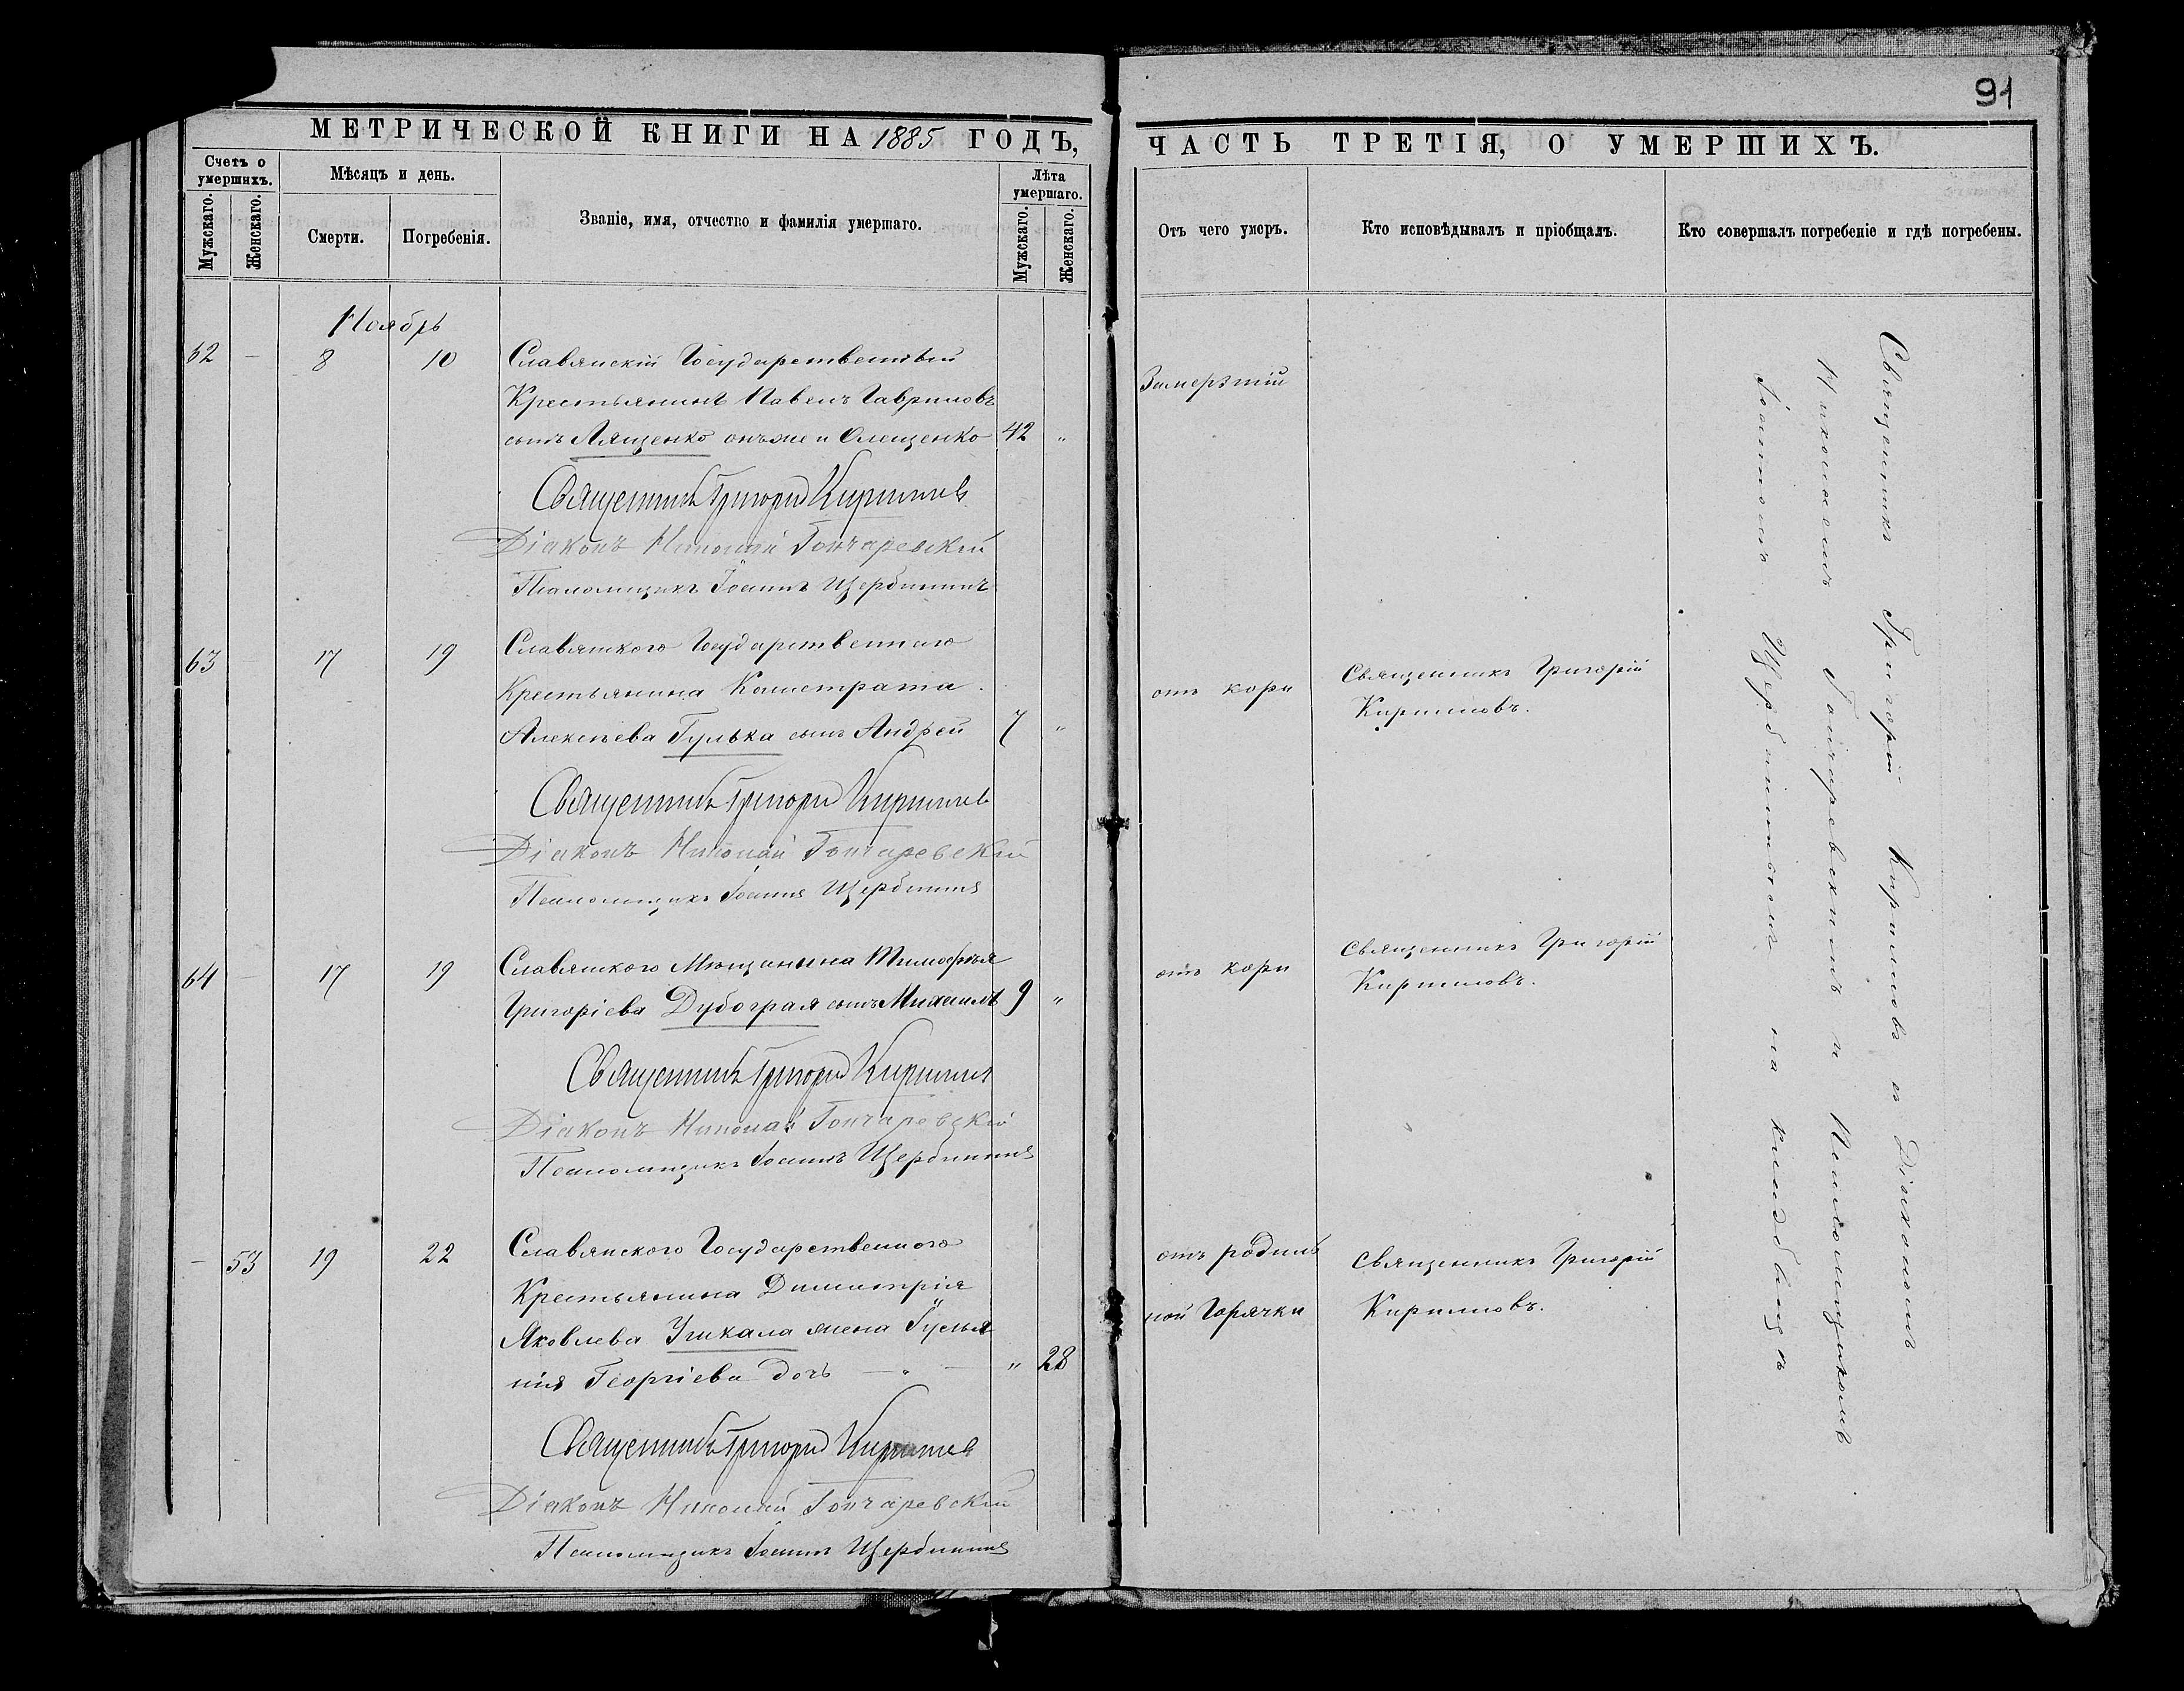 91
МЕТРИЧЕСКОЙ КНИГИ НА 1885 ГОДЪ,
Счетъ о умершихъ.
Мужскаго.
Женскаго.
Мѣсяцъ и день.
Смерти.
Погребенія.
Званіе, имя, отчество и фамилія умершаго.
Лѣта умершаго.
Мужскаго.
Женскаго.
Ноябрь
62 — 8 10 Славянскій Государственный
Крестьянинъ Павелъ Гавриловъ
сынъ Лященко онъ же и Олещенко 42 „
Священникъ Григорій Кирилловъ
Діаконъ Николай Гончаревскій
Псаломщикъ Іоаннъ Щербининъ
63 — 17 19 Славянского Государственного
Крестьянина Калистрата
Алексѣева Гулька сынъ Андрей 7 „
Священникъ Григорій Кирилловъ
Діаконъ Николай Гончаревскій
Псаломщикъ Іоаннъ Щербининъ
64 — 17 19 Славянского Мѣщанина Тимофѣя
Григоріева Дубограя сынъ Михаилъ 9 „
Священникъ Григорій Кирилловъ
Діаконъ Николай Гончаревскій
Псаломщикъ Іоаннъ Щербининъ
— 53 19 22 Славянского Государственного
Крестьянина Димитрія
Яковлева Учкала жена
нія Георгіева дочь — „ — „ 28
Священникъ Григорій Кирилловъ
Діаконъ Николай Гончаревскій
Псаломщикъ Іоаннъ Щербининъ
ЧАСТЬ ТРЕТІЯ, О УМЕРШИХЪ.
Отъ чего умеръ.
Кто исповѣдывалъ и пріобщалъ.
Кто совершалъ погребеніе и гдѣ погребены.
Замерзтій
отъ кори
Священникъ Григорій
Кирилловъ.
отъ кори
Священникъ Григорій
Кирилловъ.
отъ родиль
ной Горячки
Священникъ Григорій
Кирилловъ.
Священникъ Григорій Кирилловъ съ Діакономъ
Николаемъ Гончаревскимъ и Псаломщикомъ
Іоанномъ Щербининымъ на кладбищѣ